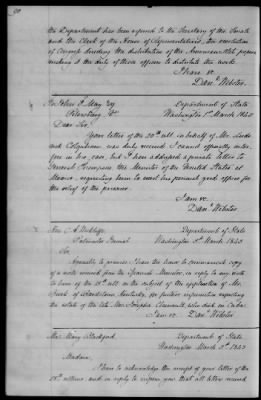 the Department has been opened to the Secretary of the Senate
and the Clerk of the House of Representatives, the resolution
of Congress directing the distribution of the American State papers
making it the duty of those officers to distribute the work.
I have &c.
Danl Webster.
Department of State
Washington 1st March 1843
Dear Sir.
Your letter of the 20th ult. in behalf of Mr.
and was duly received I cannot officially inter-
fere in his case, but I have addressed a private letter to
General Thompson the Minister of the United States at
Mexico requesting him to exert his personal good offices for
the relief of the prisoner.
I am &c.
Danl Webster
Hon. C. A. Wickliffe
Postmaster General
Department of State
Washington 2d March 1843
Sir,
Agreeably to promise I have the honor to communicate copy
of a note received from the Spanish Minister, in reply to my note
to him of the ult. on the subject of the application of Mr.
of Kentucky, for further information respecting
the estate of the late Mr. Joseph who died in Cuba.
I am &c. Danl Webster
Mrs. Mary Blackford
Department of State
Washington March 3d 1843
Madam,
I have to acknowledge the receipt of your letter of the
ultimo and in reply to inform you that all letters received